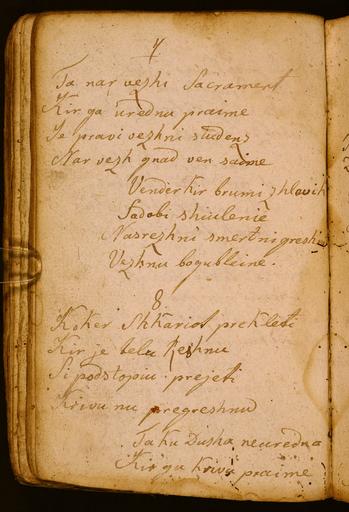 7
Ta nar vezhi Sacrament
Kir ga urednu praime
Je pravi vezhni studenz
Nar vezh gnad ven saime
Vender kir brumi zhlovik
Sadobi shiulenie
Nasrezhni smertni greshn
Vezhnu bogubleine.
8.
Koker Skhariot prekleti
Kir je
Si podstopiu prejeti
Krivu nu pregreshnu
Taku Dusha neuredna
Kir ga krivu praime